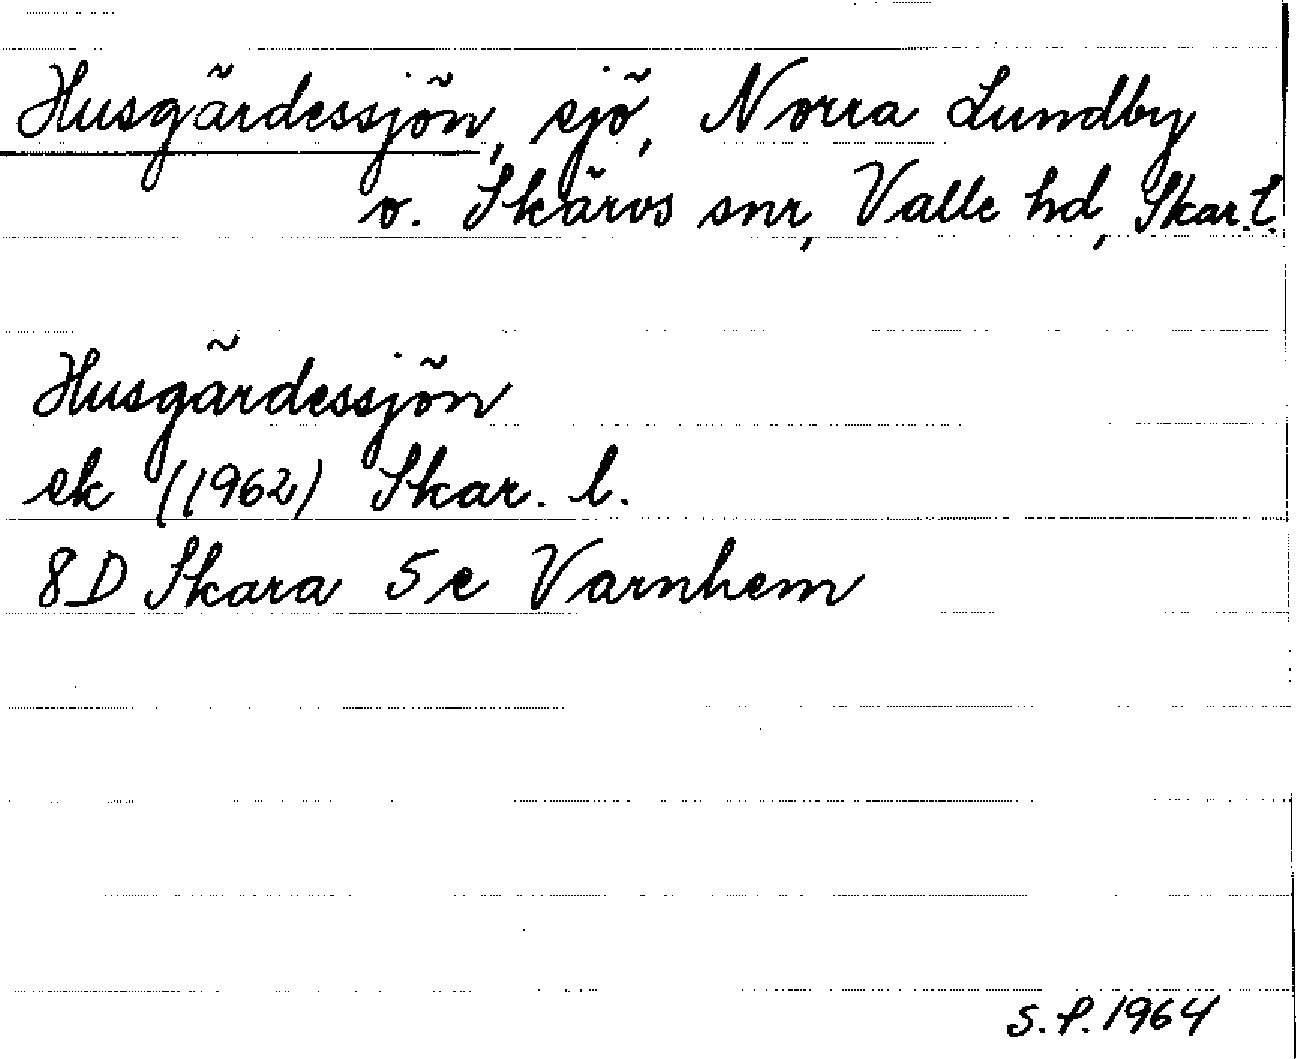 Husgärdessjön, sjö, Norra Lundby
o. Skärvs snr, Valle hd, Skar. l.
Husgärdessjön
ek (1962) Skar. l.
8D Skara 5e Varnhem
S.P. 1964